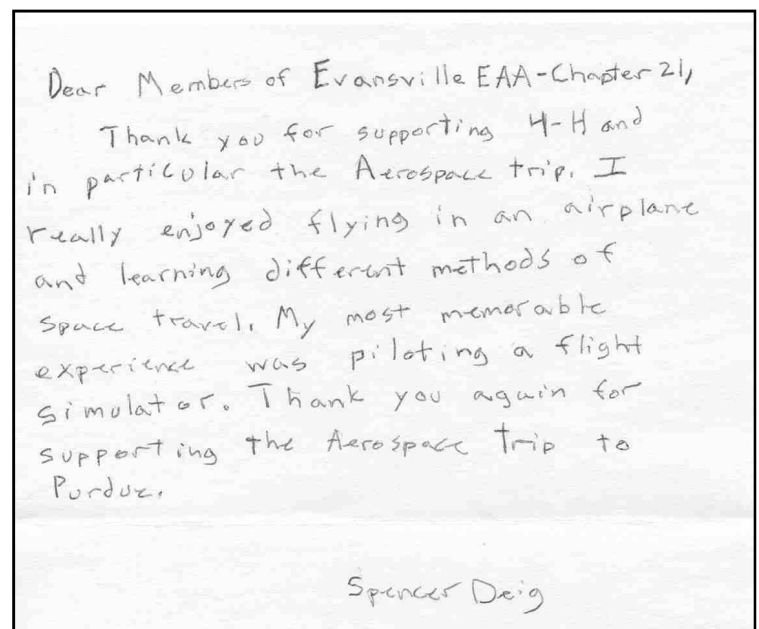 Dear Members of Evansville EAA-Chapter 21,
Thank you for supporting 4-H and
in particular the Aerospace trip. I
really enjoyed flying in an airplane
and learning different methods of
space travel. My most memorable
experience was piloting a flight
simulator. Thank you again for
supporting the Aerospace trip to
Purdue.
Spencer Deig